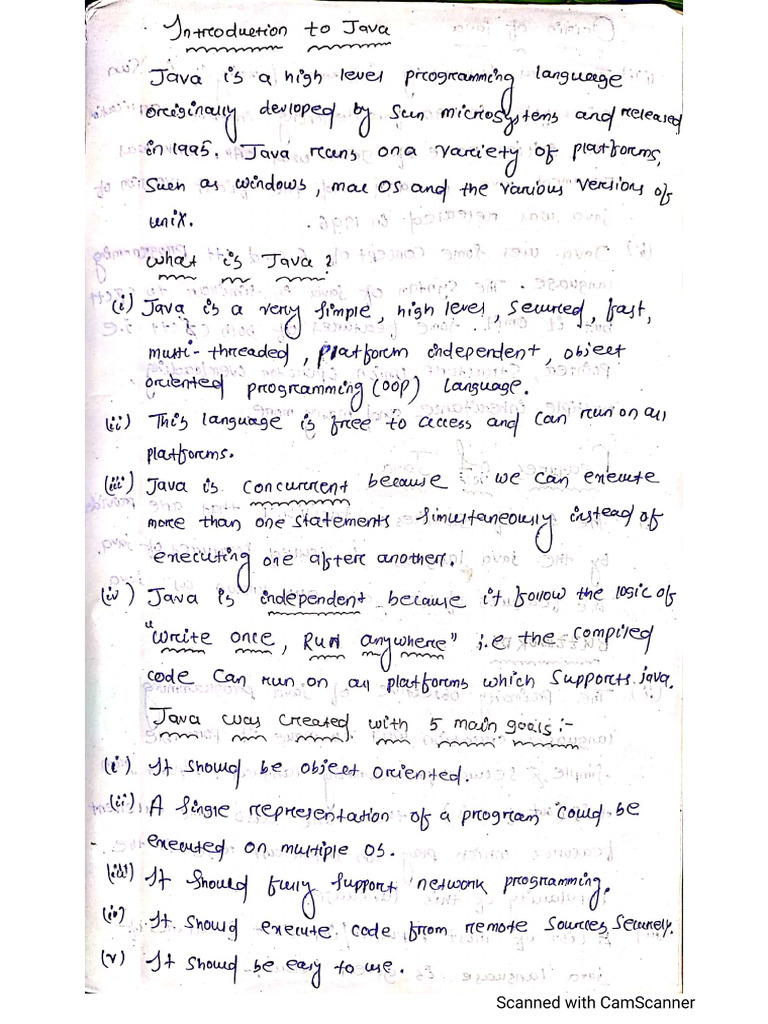 Introduction to Java
Java is a high level programming language
originally devloped by Sun microsystems and released
in 1995. Java runs on a variety of platforms,
Such as windows, mac OS and the various versions of
unix.
What is Java?
(i) Java is a very simple, high level, secured, fast,
multi-threaded, platform independent, object
oriented programming (OOP) language.
(ii) This language is free to access and can run on all
platforms.
(iii) Java is concurrent because we can execute
more than one statements simultaneously instead of
executing one after another.
(iv) Java is independent because it follow the logic of
"Write once, Run anywhere" i.e the compiled
code can run on all platforms which supports java.
Java was created with 5 main goals:-
(i) It should be object oriented.
(ii) A single representation of a program could be
executed on multiple OS.
(iii) It should fully support network programming.
(iv) It should execute code from remote sources securely.
(v) It should be easy to use.
Scanned with CamScanner